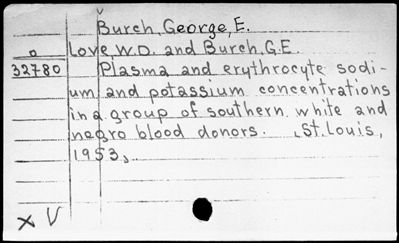 Burch, George, E.
o Love, W.D. and Burch, G.E.
32780 Plasma and erythrocyte sodi-
um and potassium concentrations
in a group of southern white and
negro blood donors. St. Louis,
1953.
x V